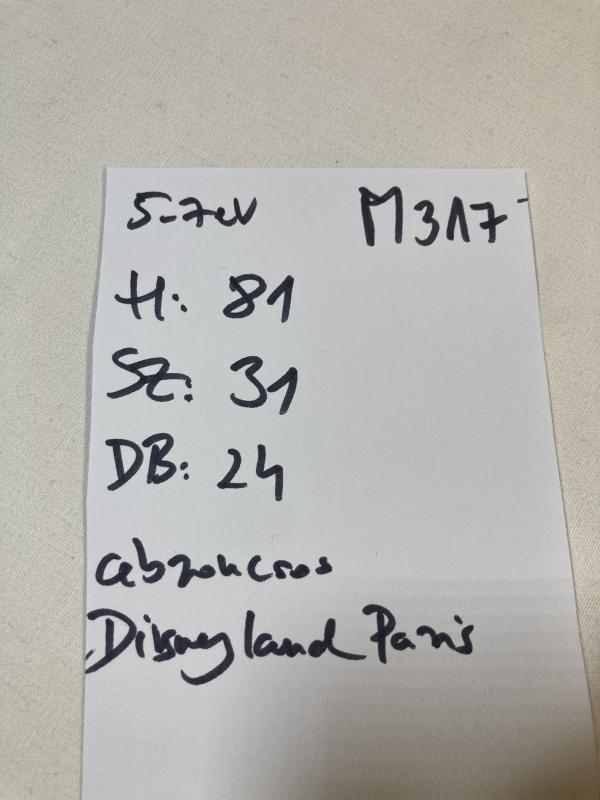 5-7 év M317
H: 81
SZ: 31
DB: 24
Disneyland Paris